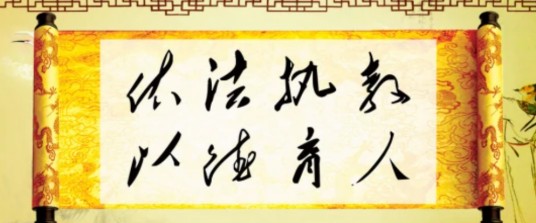 依法执教
以德育人